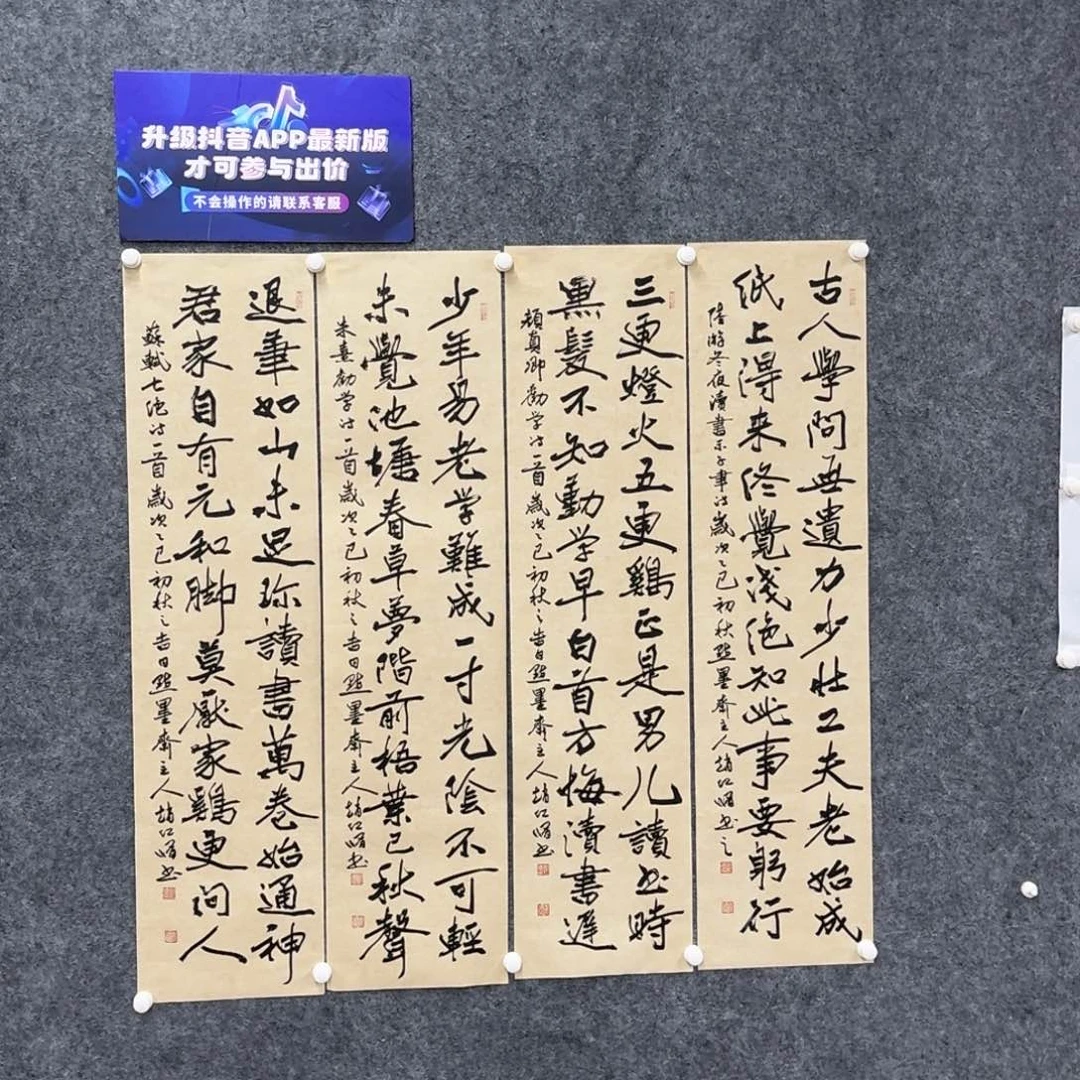 升级抖音APP最新版
才可参与出价
不会操作的请联系客服
古人學問無遺力少壯工夫老始成
纸上得来终覺淺绝知此事要躬行
陸游冬夜讀書示子聿詩歲次乙巳初秋點墨齋主人趙江曙书之
三更燈火五更鷄正是男儿讀书時
黑髮不知勤学早白首方悔讀書遲
顏真卿勸学詩一首歲次乙巳初秋之吉日點墨齋主人趙江曙书
少年易老学難成一寸光陰不可輕
未覺池塘春草夢階前梧葉已秋聲
朱熹勸学詩一首歲次乙巳初秋之吉日點墨齋主人趙江曙书
退筆如山未足珎讀書萬卷始通神
君家自有元和脚莫厭家鷄更问人
蘇軾七绝詩一首歲次乙巳初秋之吉日點墨齋主人趙江曙书